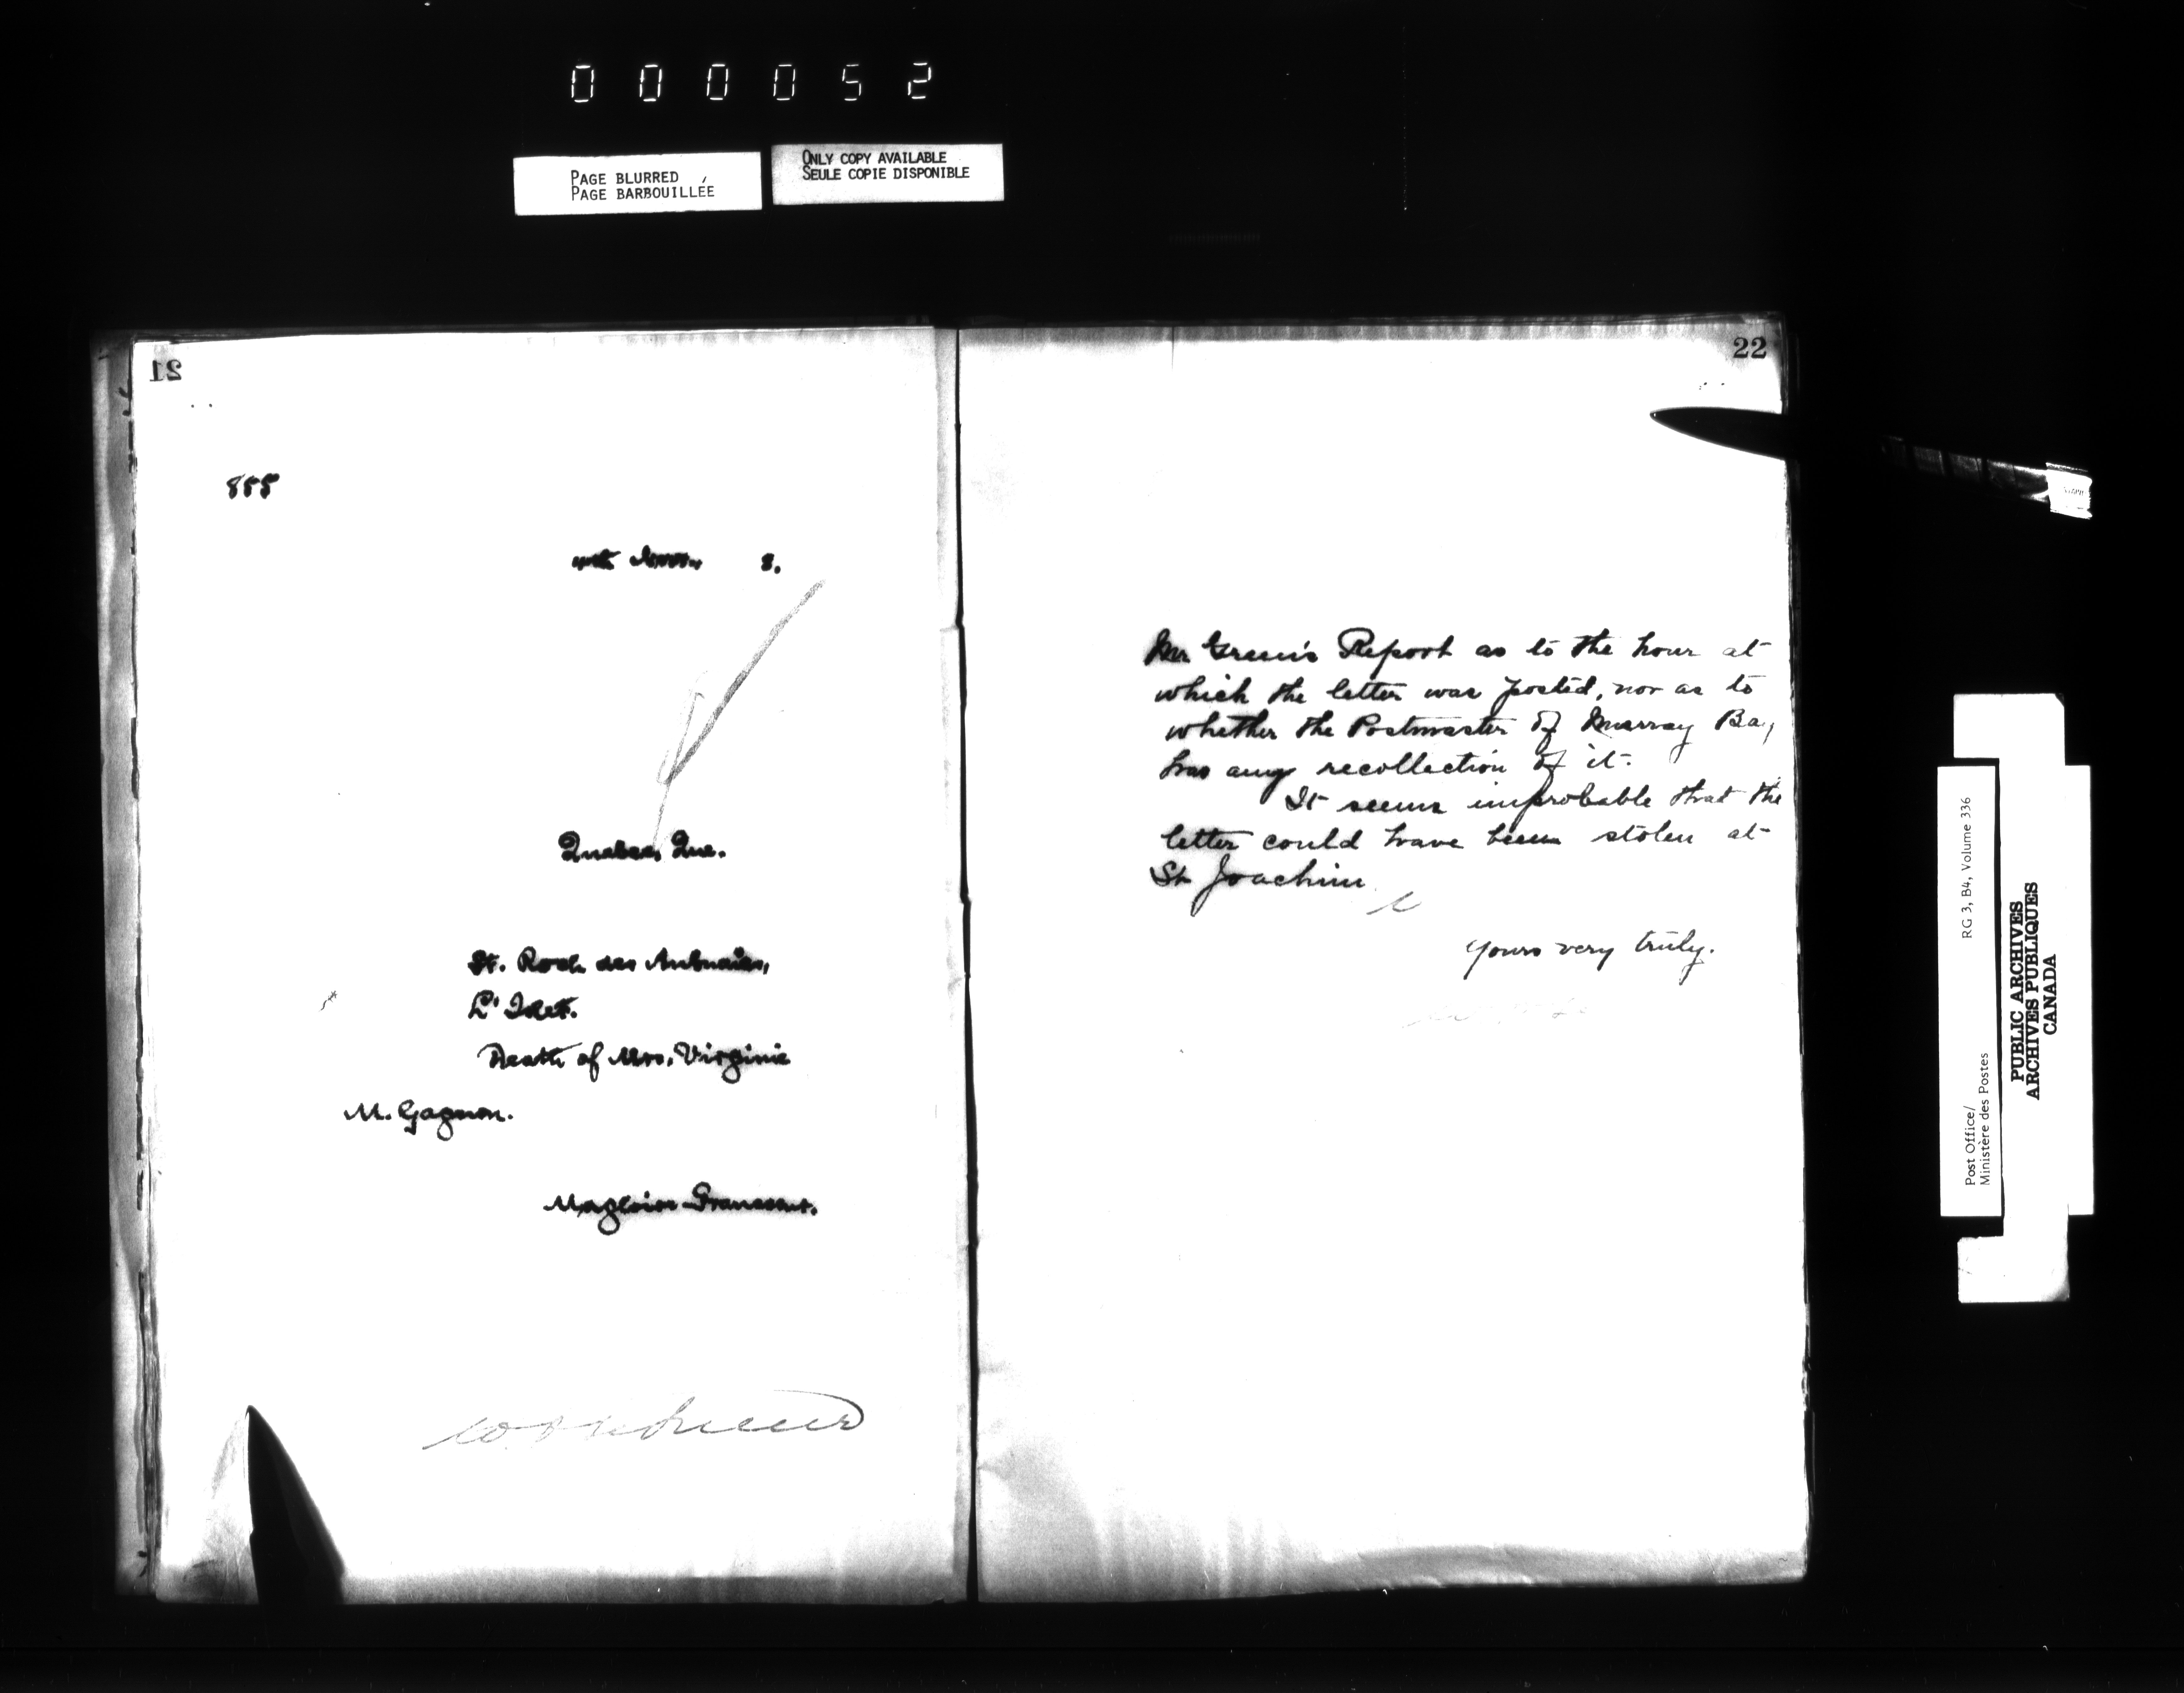 000052
PAGE BLURRED
PAGE BARBOUILLÉE
ONLY COPY AVAILABLE
SEULE COPIE DISPONIBLE
21
855
8.
Quebec, Que.
St. Roch des Aulnaies,
L'Islet.
Death of Mrs. Virginie
M. Gagnon.
Magloire
22
Mr Green's Report as to the hour at
which the letter was posted, nor as to
whether the Postmaster of Murray Bay
has any recollection of it.
It seems improbable that the
letter could have been stolen at
St Joachim
Yours very truly.
Post Office/
Ministère des Postes
RG 3, B4, Volume 336
PUBLIC ARCHIVES
ARCHIVES PUBLIQUES
CANADA